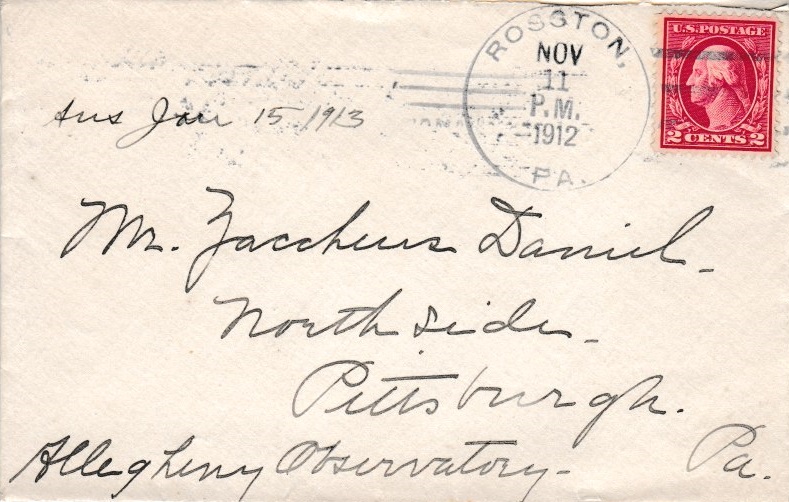 ROSSTON,
NOV
11
P.M.
1912
PA.
U.S. POSTAGE
2 CENTS 2
ans Jan 15 1913
Mr. Zaccheus Daniel
North Side
Pittsburgh.
Allegheny Observatory Pa.